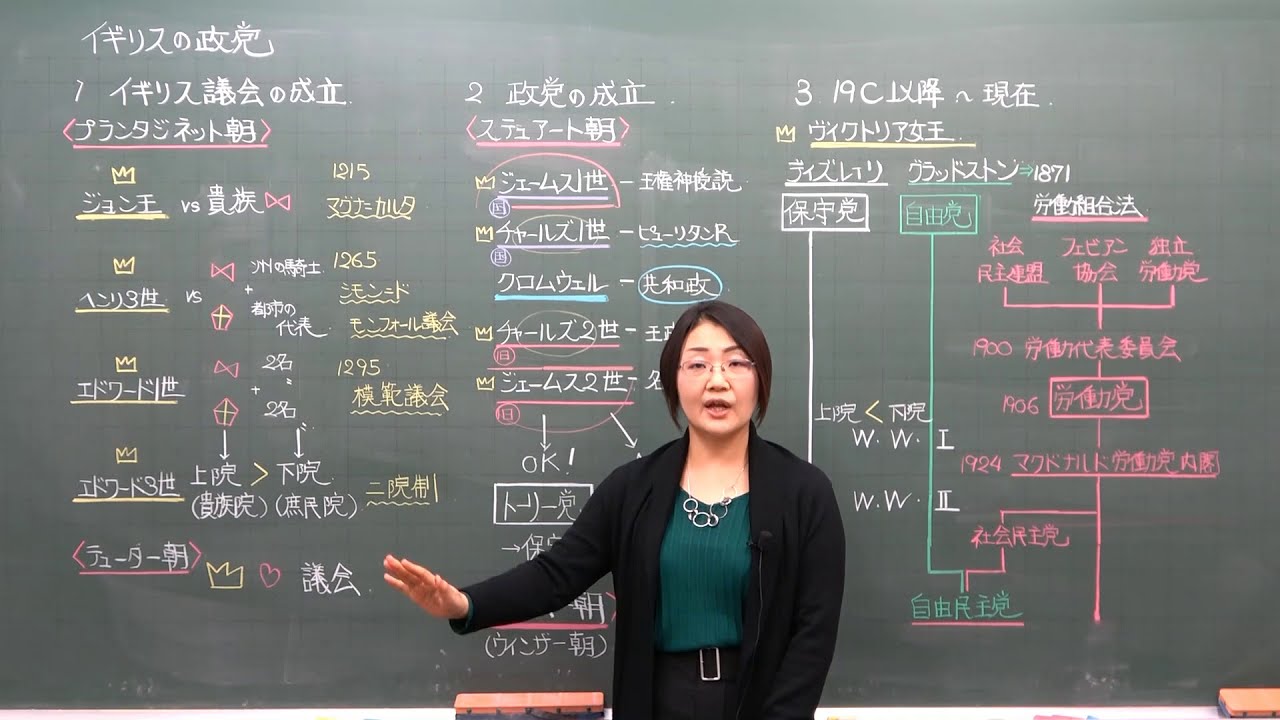 イギリスの政党
1 イギリス議会の成立.
〈プランタジネット朝〉
ジョン王 vs 貴族
1215
マグナ=カルタ
ヘンリ3世 vs
州の騎士
+
都市の
代表
1265
シモン=ド
モンフォール議会
エドワード1世
2名
+ 〃
2名
1295
模範議会
エドワード3世
上院 > 下院.
(貴族院) (庶民院)
二院制
〈テューダー朝〉
議会.
2 政党の成立.
〈ステュアート朝〉
ジェームス1世 − 王権神授説
国
チャールズ1世 − ピューリタンR
国
クロムウェル − 共和政
チャールズ2世 − 王政
旧
ジェームス2世 − 名
旧
OK!
トーリー党
→保守
朝〉
(ウィンザー朝)
3 19C以降〜現在.
ヴィクトリア女王
ディズレーリ グラッドストン⇒1871
保守党 自由党 労働組合法
社会
民主連盟
フェビアン
協会
独立
労働党
1900 労働代表委員会
1906 労働党
上院 < 下院
W.W. I
1924 マクドナルド労働党内閣
W.W. II
社会民主党
自由民主党